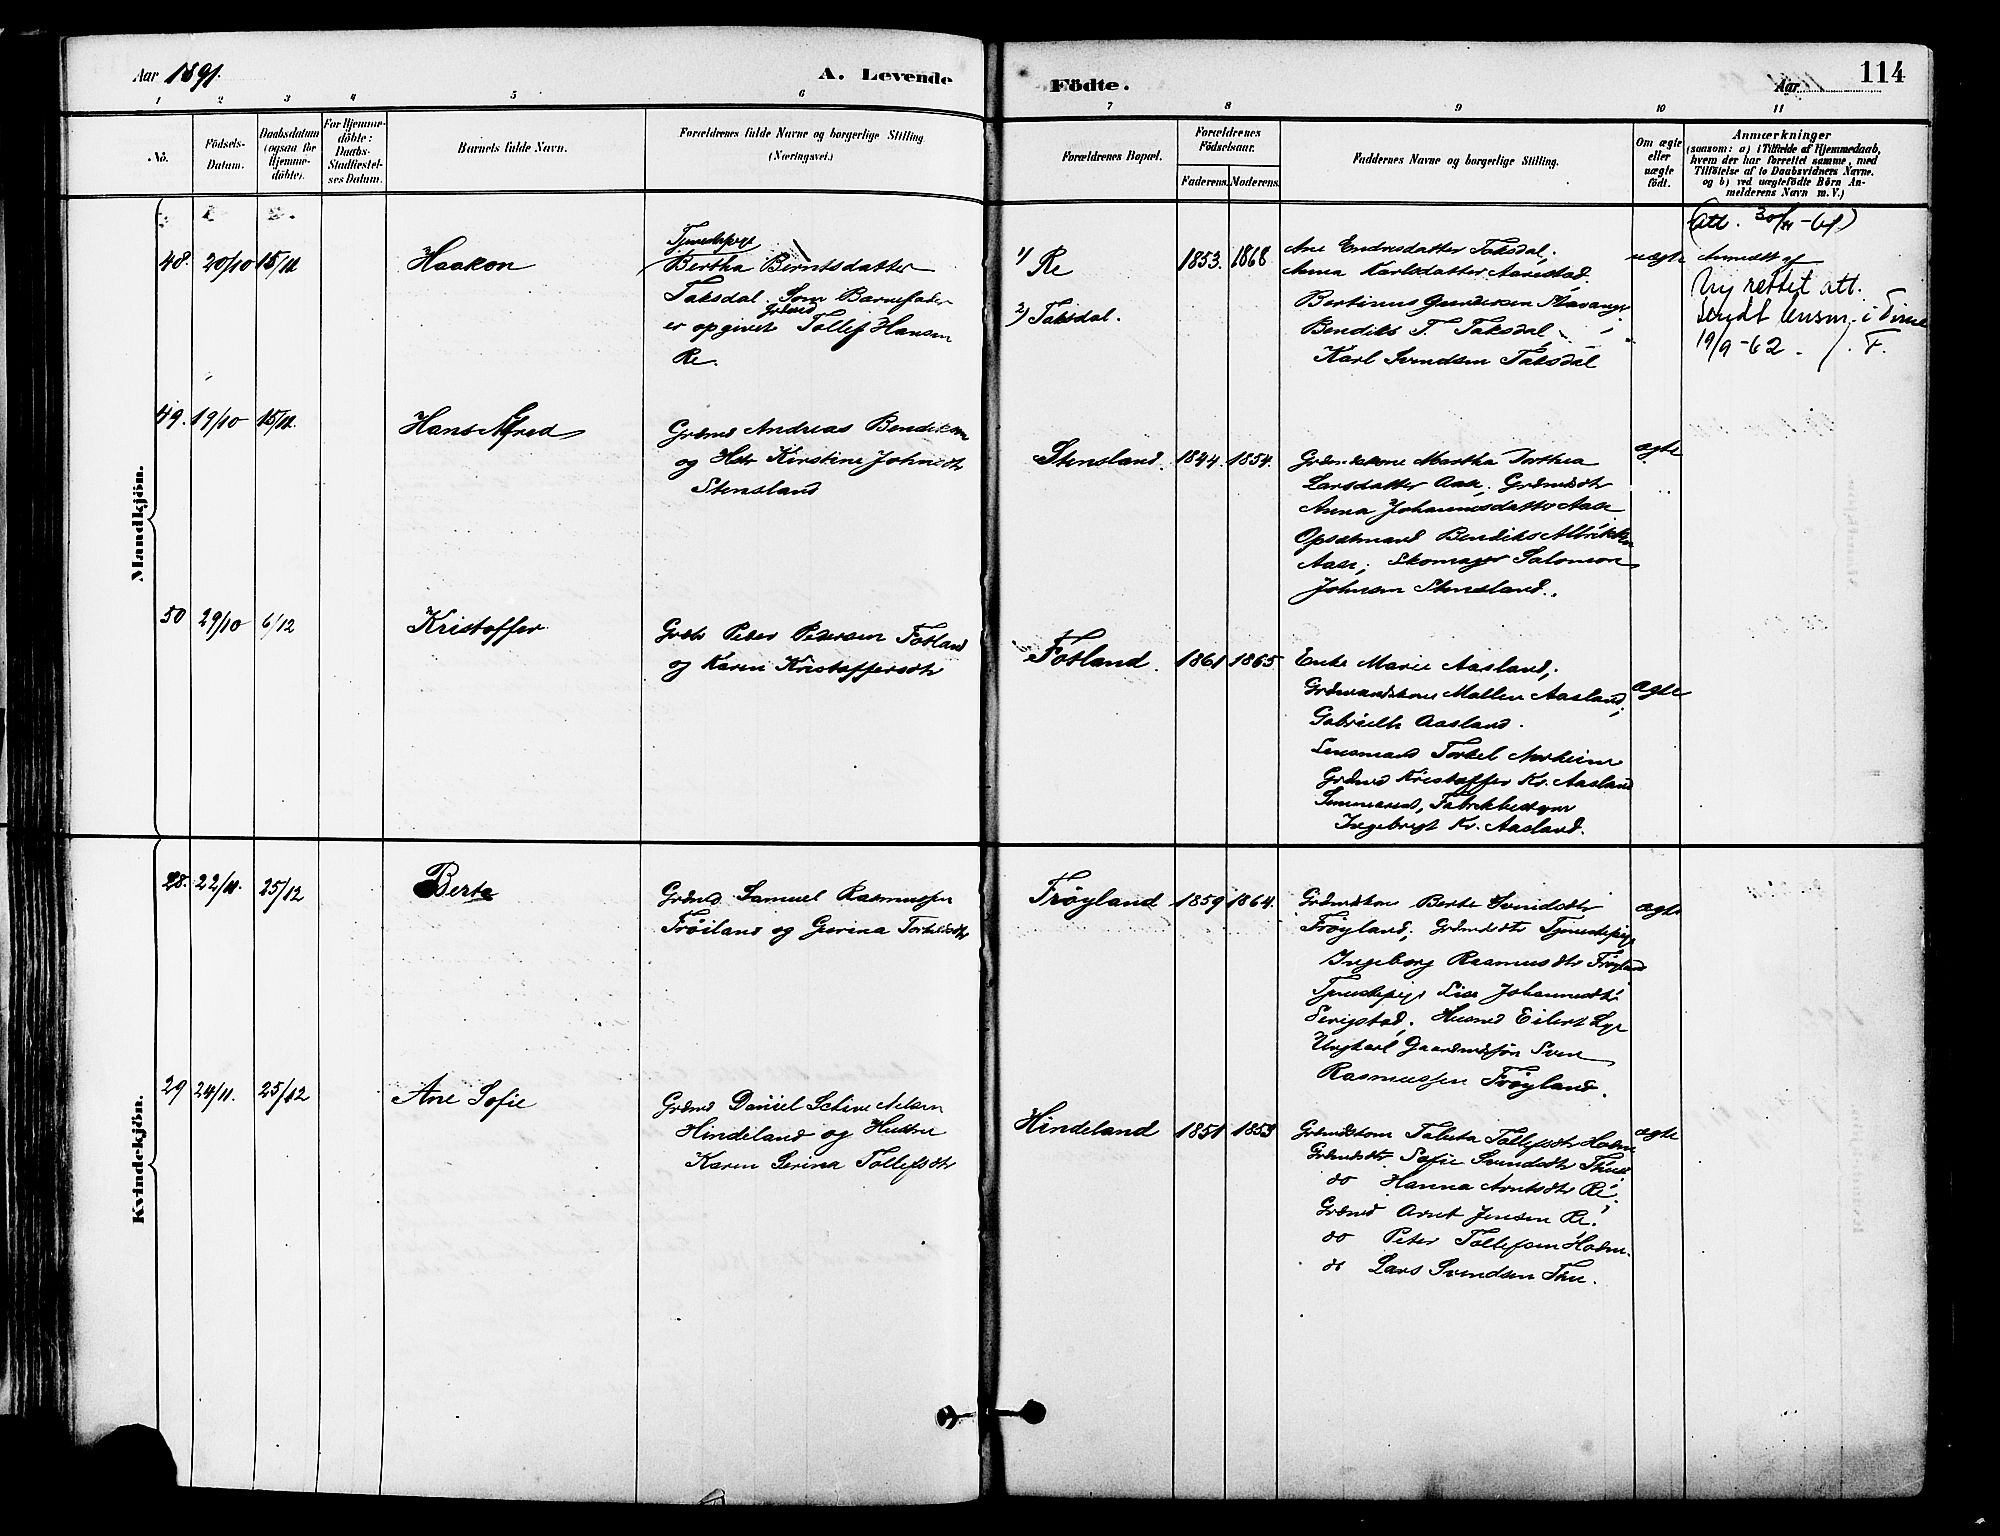 Aar 1891.
A. Levende
Födte.
Aar
114
1 2 3 4 5 6 7 8 9 10 11
No.
Födsels-
Datum.
Daabsdatum
(ogsaa for
Hjemme-
döbte).
For Hjemme-
döbte:
Daabs-
Stadfæstel-
ses Datum.
Barnets fulde Navn.
Forældrenes fulde Navne og borgerlige Stilling
(Næringsvei.)
Forældrenes Bopæl.
Forældrenes
Födselsaar.
Faderens. Moderens.
Faddernes Navne og borgerlige Stilling.
Om ægte
eller
uægte
födt.
Anmærkninger
(saasom: a) i Tilfælde af Hjemmedaab,
hvem der har forrettet samme, med
Tilföielse af to Daabsvidners Navne.
og b) ved uægtefödte Börn An-
melderens Navn m. V.)
Mandkjön.
48. 20/10 15/11
Haakon
Tjenestepige
Bertha Berntsdatter
Taksdal. Som Barnefader
er opgivet Grdmd Tollef Hansen
Re.
1) Re
2) Taksdal.
1853. 1868
Ane Endresdatter Taksdal,
Anna Karlsdatter Aarestad
Bertinus Gundersen Stavanger
Bendiks T. Taksdal,
Karl Svendsen Taksdal
uægte
Att. 30/11-61)
Anmeldt af
Ny rettet att.
sendt lensm. i Time
19/9-62. /. F.
49. 19/10 15/11.
Hans Alfred
Grdmd Andreas Bendiksen
og Hstr Kirstine Johnsdtr
Stensland
Stensland. 1844. 1854.
Grdmdskone Martha Dorthea
Larsdatter Aase, Grdmdsdtr
Anna Johannesdatter Aase
Opsidmand Bendiks Albrikken
Aase; Skomager Salomon
Johnsen Stensland.
ægte
50 29/10 6/12
Kristoffer
Grdbr Peder Pedersen Fotland
og Karen Kristoffersdtr
Fotland. 1861 1865
Enke Marie Aasland,
Grdmandskone Mallen Aasland,
Gabrielle Aasland.
Lensmand Torkel Aarheim
Grdmd Kristoffer Kr. Aasland
Fabrikbestyrer
Ingebregt Kr. Aasland.
ægte
Kvindekjön.
28. 22/11. 25/12
Berta
Grdmd. Samuel Rasmussen
Fröiland og Gurina Torkelsdtr
Frøyland 1859 1864.
Grdmdskone Berte Svendsdtr
Frøyland; Grdmdsdtr Tjenestepige
Ingeborg Rasmusdtr Frøyland
Tjenestepige Lise Johannesdtr
Serigstad. Husmd Eilert Lye
Ungkarl Gaardmdssøn Sven
Rasmussen Frøyland.
ægte
29 24/11. 25/12
Ane Sofie
Grdmd Daniel Schive Nelsen
Hindeland og Hustru
Karen Serina Tollefsdtr
Hindeland 1851 1853
Grdmdskone Tabita Tollefsdtr Hodne
Grdmdsdtr. Sofie Svendsdtr Thue
do Hanna Arntsdtr Re,
Grdmd Arnt Jensen Re.
do Peter Tollefsen Hodne.
do Lars Svendsen Thu.
ægte